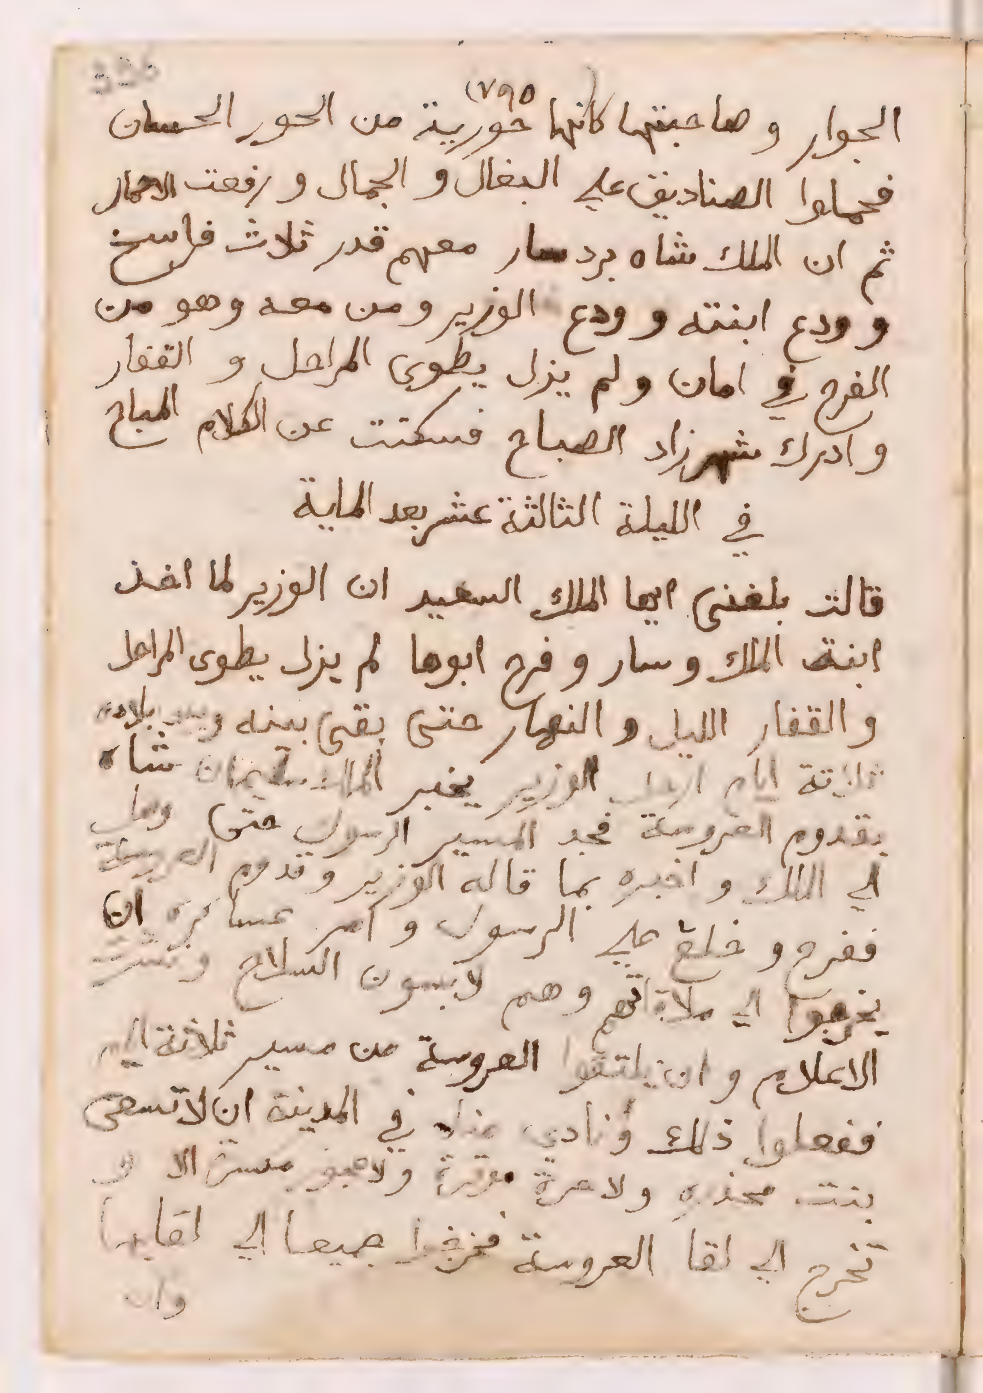 336
(٧٩٥)
الجوار و صاحبتها كانها حوريية من الحور الحسان
فحملوا الصناديق علي البغال و الجمال و رفعت الاحمار
ثم ان الملك شاه برد سار معهم قدر ثلاث فراسخ
و ودع ابنته و ودع الوزير و من معه وهو من
الفرح في امان و لم يزل يطوى المراحل و القفار
و ادرك شهرزاد الصباح فسكتت عن الكلام المباح
في الليلة الثالثة عشر بعد الماية
قالت بلغنى ايها الملك السعيد ان الوزير لما اخذ
ابنة الملك و سار و فرح ابوها لم يزل يطوى المراحل
و القفار الليل و النهار حتى بقى بينه وبين بلاده
ثلاثة ايام ارسل الوزير يخبر الملك سليمان شاه
بقدوم العروسة فجد المسير الرسول حتى وصل
الي الملك و اخبره بما قاله الوزير و قدوم العروسة
ففرح و خلع علي الرسول و امر عساكره ان
يخرجوا الي ملاقاتهم و هم لابسون السلاح و نشرت
الاعلام و ان يلتقوا العروسة من مسير ثلاثة ايام
ففعلوا ذلك و نادي مناد في المدينة ان لا تبقى
بنت مخدره و لا حرة موقرة و لا عجوز مسرة الا و
تخرج الي لقا العروسة فخرجوا جميعا الي لقايها
وان